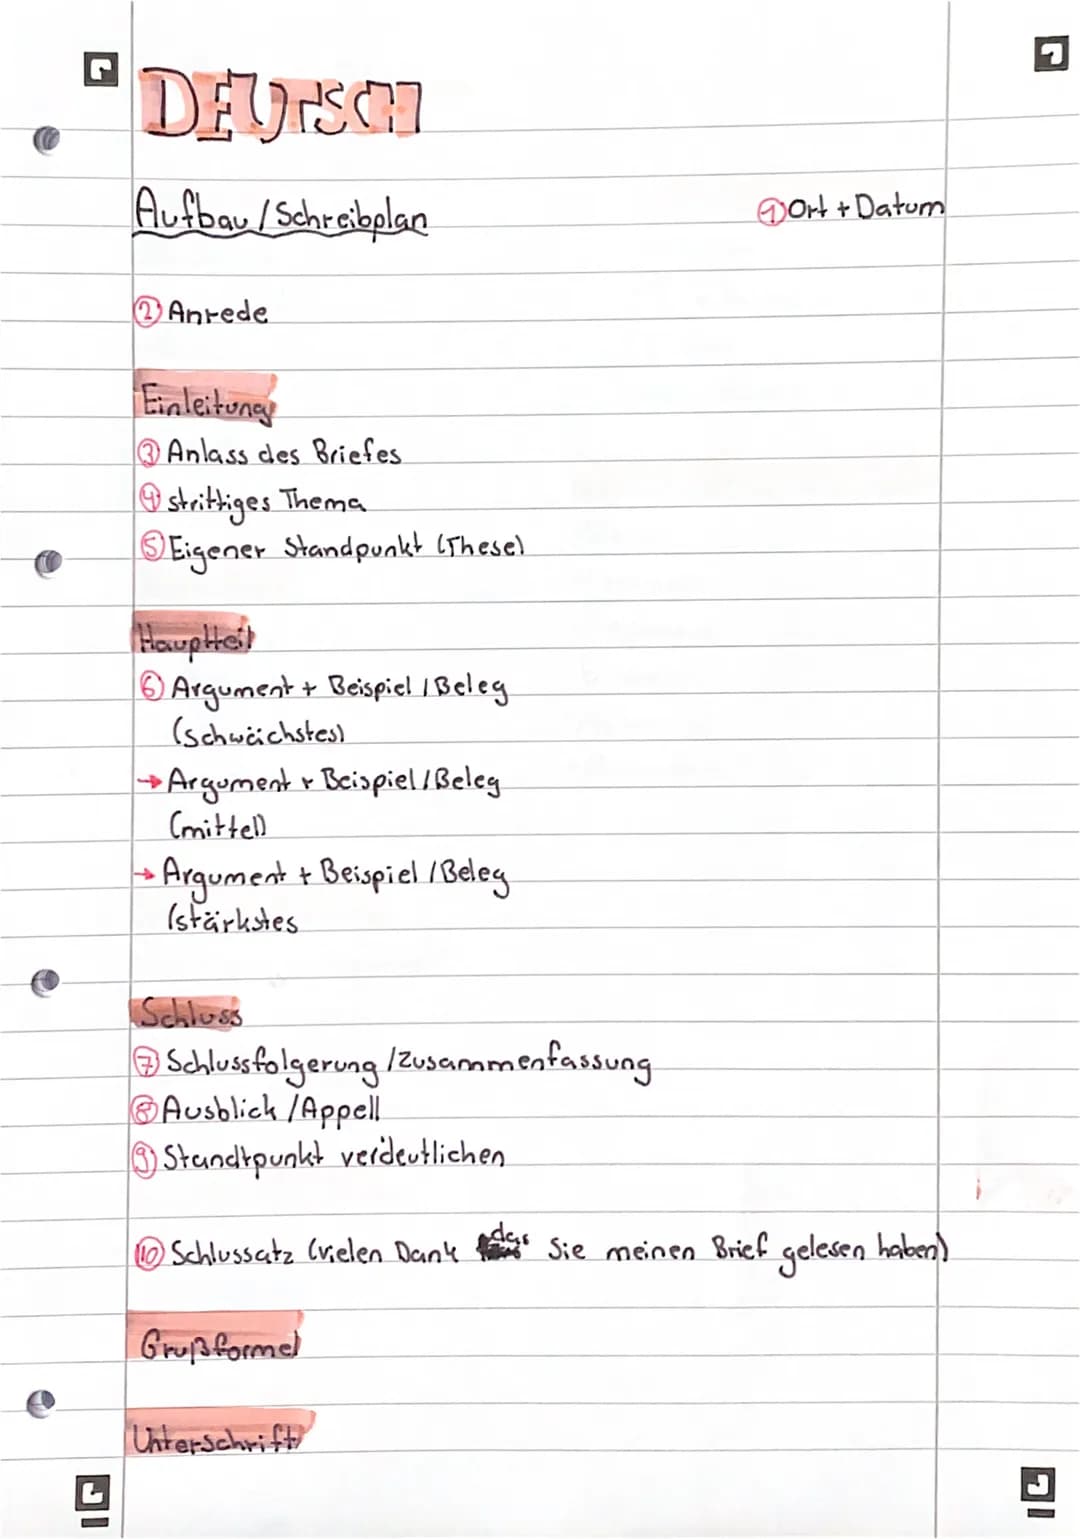 DEUTSCH
Aufbau / Schreibplan
① Ort + Datum
② Anrede
Einleitung
③ Anlass des Briefes
④ strittiges Thema
⑤ Eigener Standpunkt (These)
Hauptteil
⑥ Argument + Beispiel / Beleg
(schwächstes)
→ Argument + Beispiel / Beleg
(mittel)
→ Argument + Beispiel / Beleg
(stärkstes
Schluss
⑦ Schlussfolgerung / Zusammenfassung
⑧ Ausblick / Appell
⑨ Standtpunkt verdeutlichen
⑩ Schlussatz (vielen Dank das Sie meinen Brief gelesen haben)
Grußformel
Unterschrift